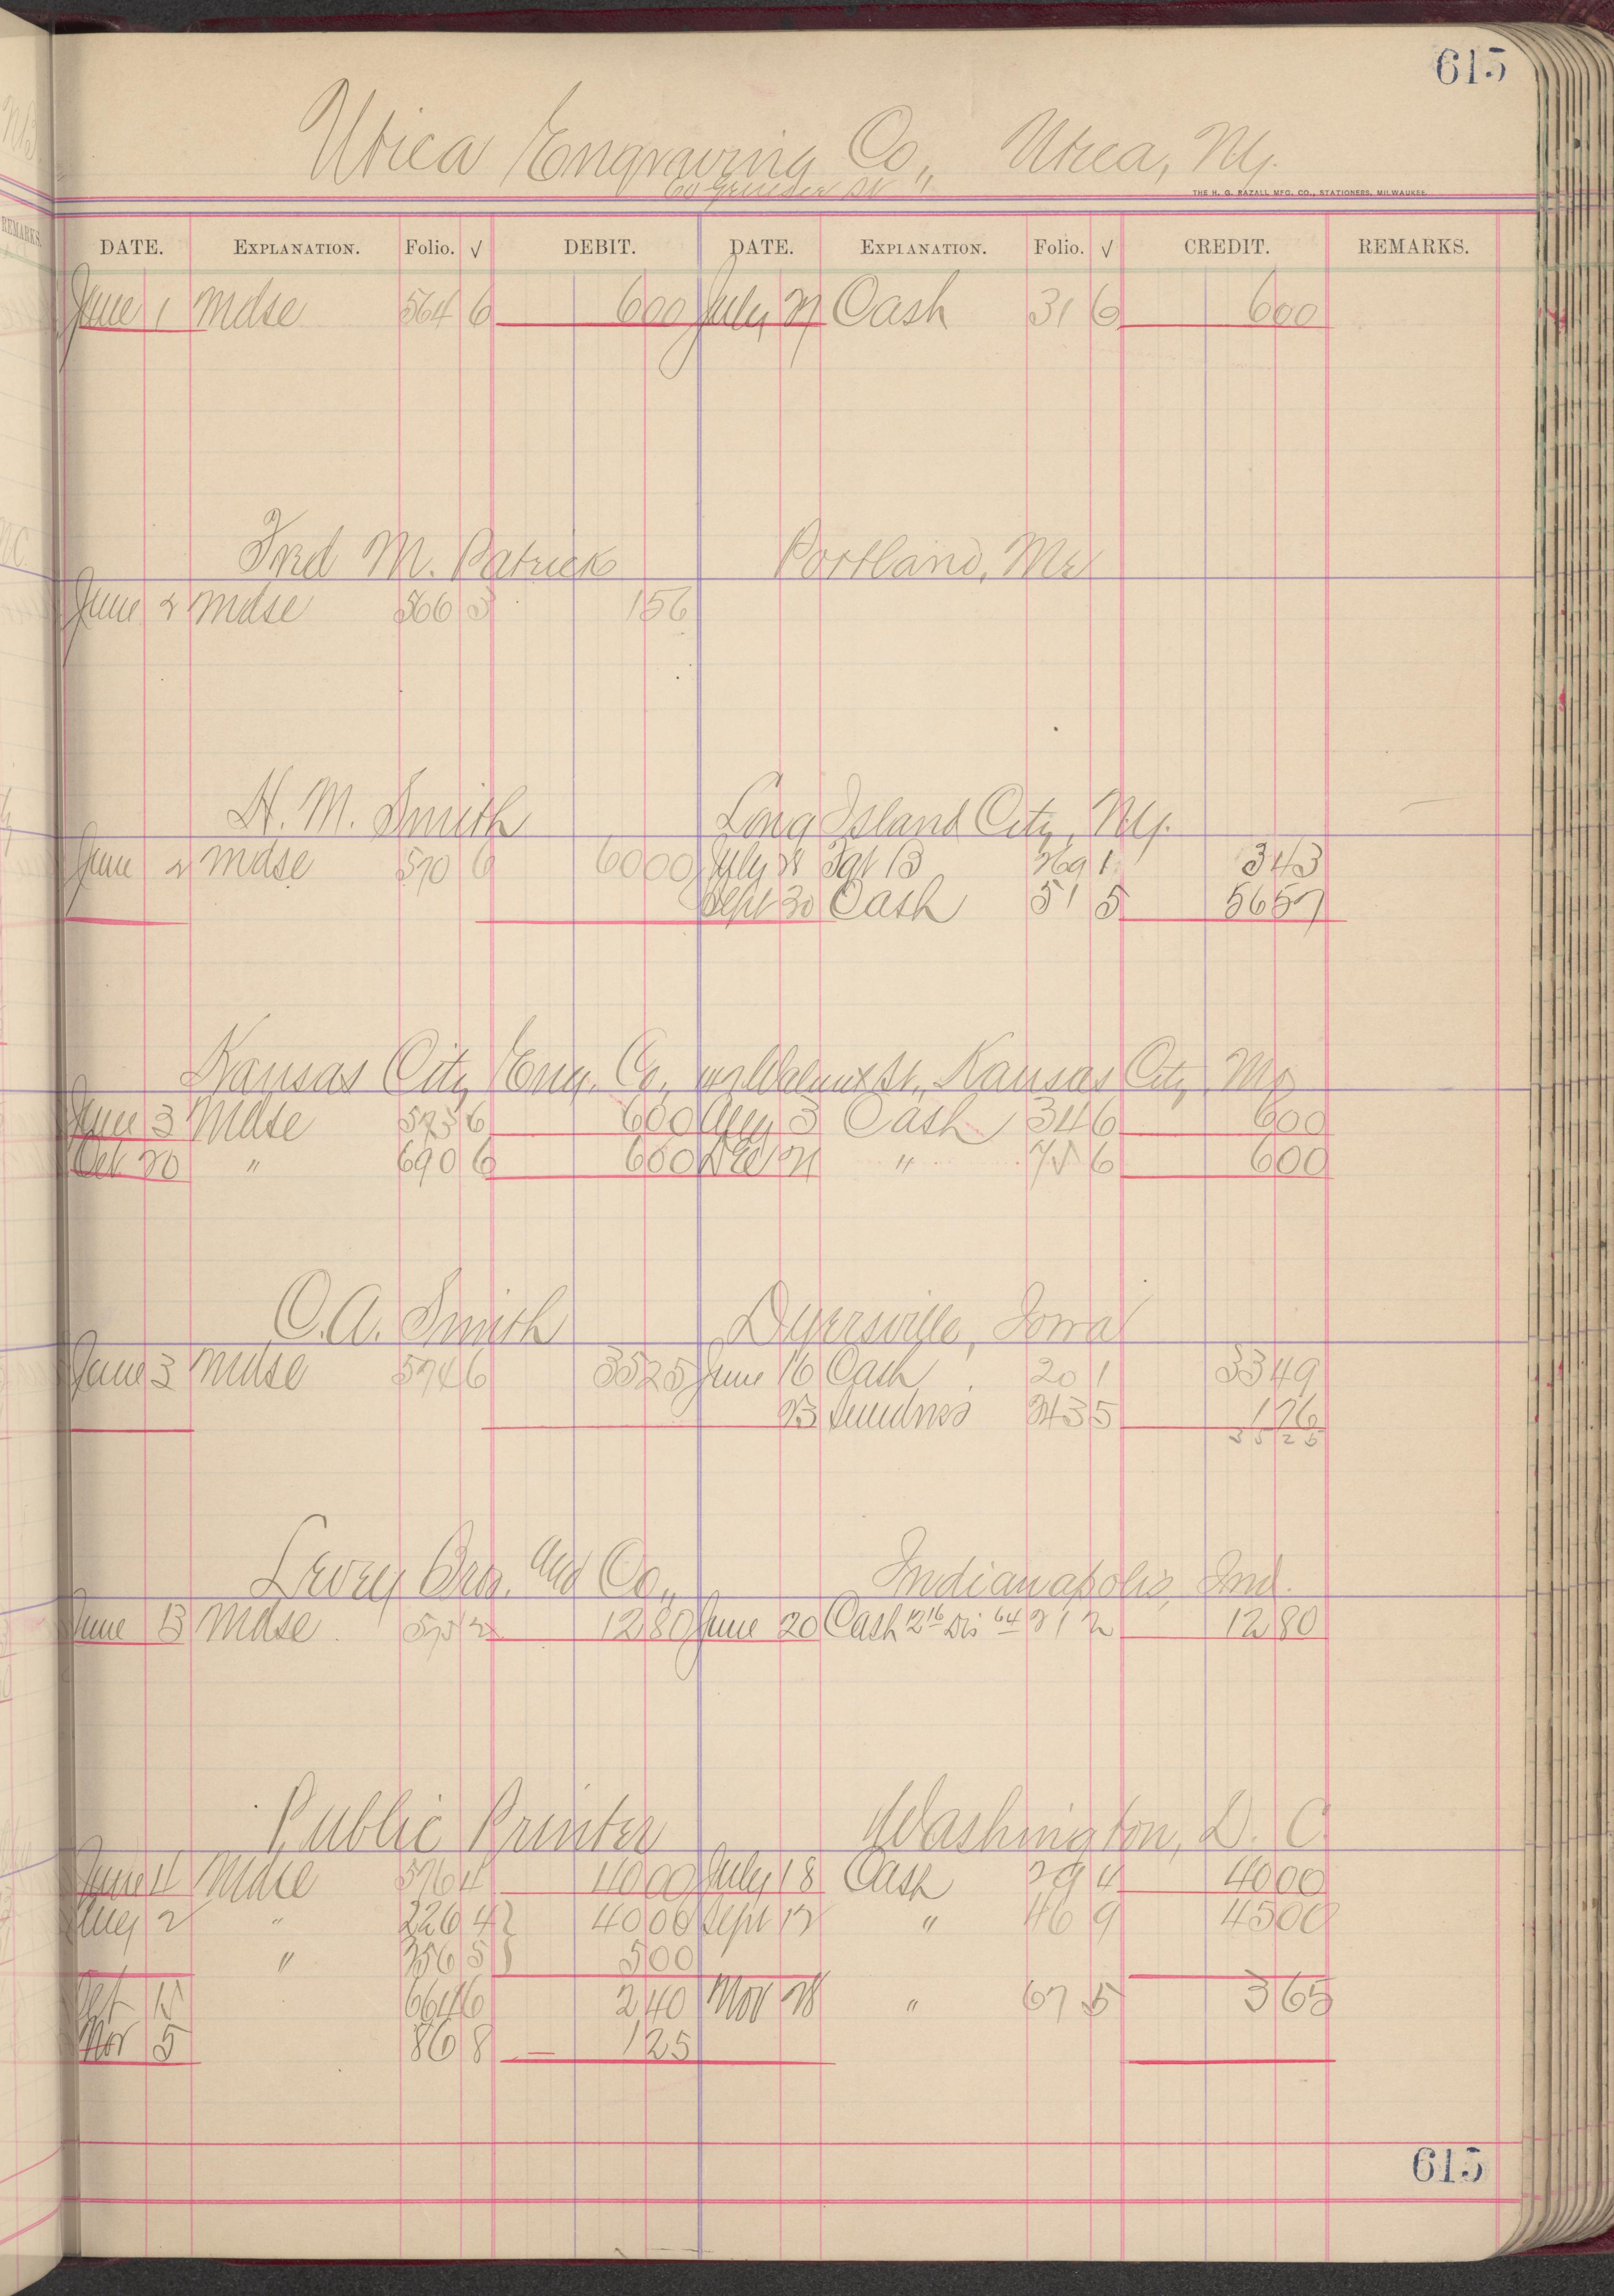 615
Utica Engraving Co., Utica, Ny.
60 St
THE H. G. RAZALL MFG. CO., STATIONERS, MILWAUKEE
DATE. EXPLANATION. Folio. √ DEBIT. DATE. EXPLANATION. Folio. √ CREDIT. REMARKS.
June 1 Mdse 564 6 600 July 27 Cash 31 6 600
Fred M. Patrick Portland, Me
June 2 Mdse 566 3 156
H. M. Smith Long Island City, Ny.
June 2 Mdse 570 6 6000 July 28 269 1 343
Sept 30 Cash 51 5 5657
Kansas City Eng. Co., Walnut St., Kansas City, Mo
June 3 Mdse 573 6 600 Aug 3 Cash 34 6 600
Oct 20 " 690 6 600 Dec 21 " 75 6 600
O. A. Smith Dyersville, Iowa
June 3 Mdse 574 6 3525 June 16 Cash 20 1 3349
23 Sundries 243 5 176
3525
Levey Bros. and Co., Indianapolis, Ind.
June 13 Mdse 2 1280 June 20 Cash 12 16 Dis 64 21 2 1280
Public Printer Washington, D. C.
June 4 Mdse 576 4 4000 July 18 Cash 29 4 4000
Aug 2 " 226 4 } 4000 Sept 12 " 46 9 4500
" 256 5 } 500
Oct 15 664 6 240 Nov 28 " 67 5 365
Nov 5 86 8 125
615